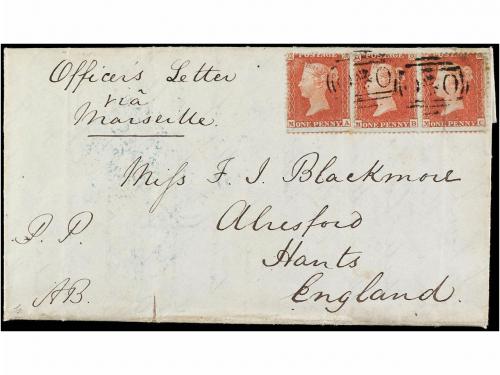 POSTAGE POSTAGE
M ONE PENNY A M ONE PENNY B M ONE PENNY C
Officer's Letter
via
Marseille.
Miss F. J. Blackmore
Alresford
Hants
England.
P. P.
AB.